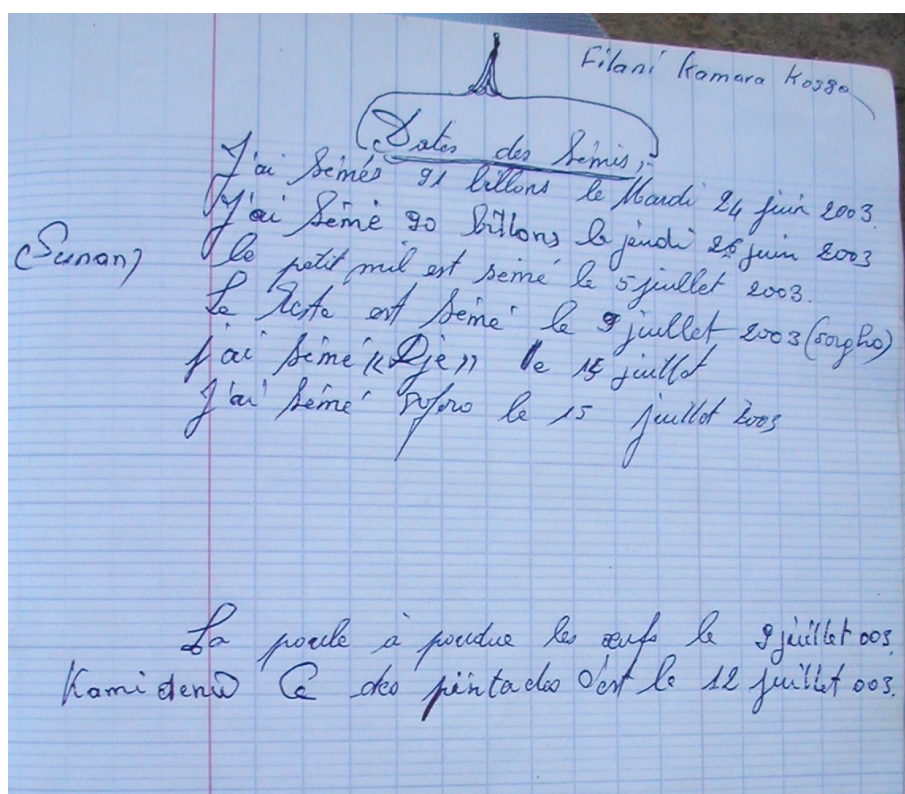 Filani Kamara Kosso
Dates des Semis,
J'ai sémés 91 billons le Mardi 24 juin 2003.
J'ai sémé 90 billons le jeudi 26 juin 2003
(Sunan) le petit mil est semé le 5 juillet 2003.
Le Reste est sémé le 9 juillet 2003 (sorgho)
j'ai sémé «Dje» le 15 juillet
J'ai sémé le 15 juillet 2003
La poule à pondue les œufs le 9 juillet 003.
Kami denw Ce des pintades c'est le 12 juillet 003.